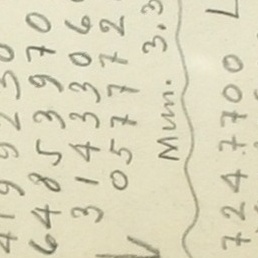 4199230
64853970
3143306
057772
Mum. 3.3
724.7700 L